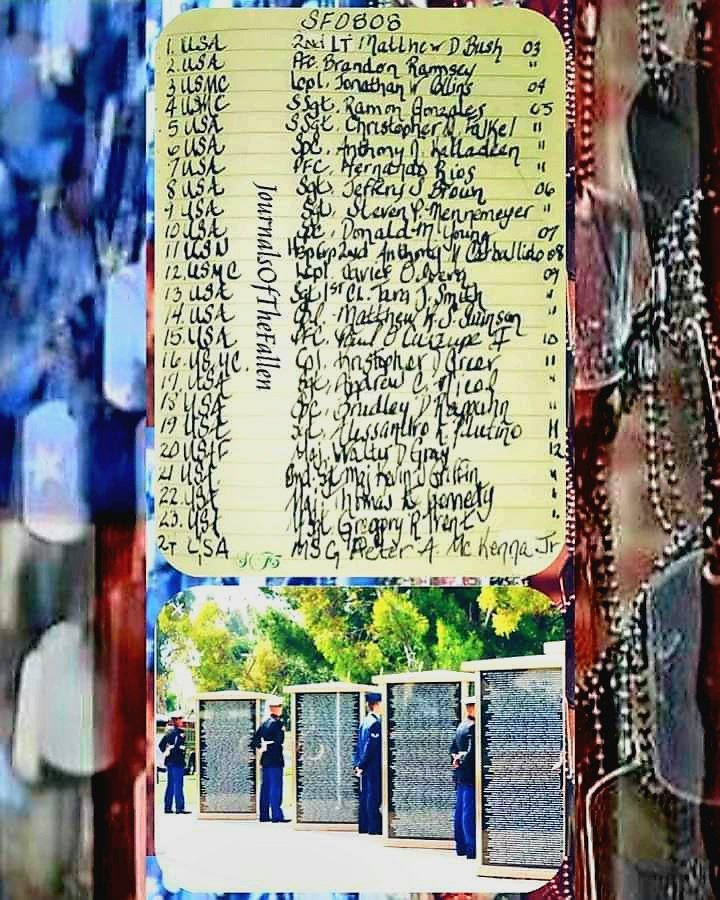 SF0808
1. USA 2nd LT Matthew D Bush 03
2. USA Pfc. Brandon Ramsey "
3 USMC Lcpl. Jonathan W Collins 04
4 USMC SSgt. Ramon Gonzales 05
5 USA SSgt. Christopher M. Falkel "
6 USA Spc. Anthony N. Kalladeen "
7 USA PFC. Hernando Rios "
8 USA Sgt. Jeffery S Brown 06
9 USA Sgt. Steven P. Mennemeyer "
10 USA Spc. Donald M. Young 07
11 USN Anthony M Carballido 08
12. USMC Lcpl. Javier O 09
13 USA Sgt 1st Cl. Tara J. Smith "
14. USA Cpl. Matthew K. S. Swanson
15. USA PFC. Paul O Cuzzupe II 10
16. USMC. Cpl. Kristopher D Greer 11
17. USA Sgt. Andrew C. Nicol "
18 USA Spc. Bradley D Rappuhn "
19 USA Sgt. Alessandro L. Plutino 11
20 USAF Maj. Walter D Gray 12
21 USA Cmd. Sgt Maj Kevin J Griffin "
22. USA Maj Thomas E. Kennedy "
23. USA Gregory R Trent "
24 USA MSG Peter A. McKenna Jr
JournalsOfTheFallen